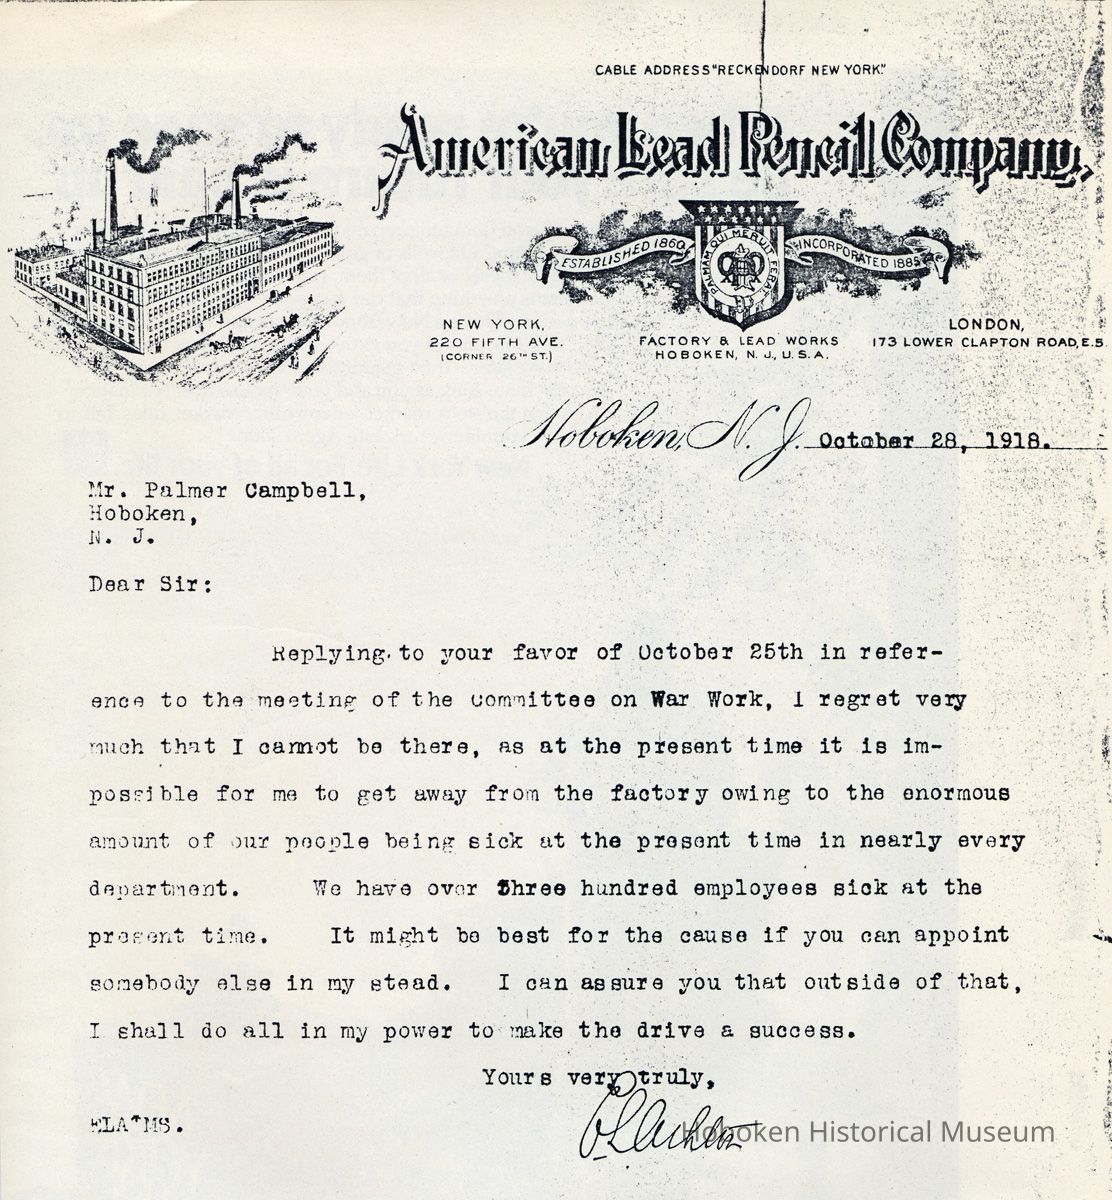 CABLE ADDRESS "RECKENDORF NEW YORK."
American Lead Pencil Company,
ESTABLISHED 1860
PALMAM QUI MERUIT FERAT
INCORPORATED 1885
NEW YORK,
220 FIFTH AVE.
(CORNER 26TH ST.)
FACTORY & LEAD WORKS
HOBOKEN, N. J., U. S. A.
LONDON,
173 LOWER CLAPTON ROAD, E.5.
Hoboken, N. J. October 28, 1918.
Mr. Palmer Campbell,
Hoboken,
N. J.
Dear Sir:
Replying to your favor of October 25th in refer-
ence to the meeting of the Committee on War Work, I regret very
much that I cannot be there, as at the present time it is im-
possible for me to get away from the factory owing to the enormous
amount of our people being sick at the present time in nearly every
department. We have over three hundred employees sick at the
present time. It might be best for the cause if you can appoint
somebody else in my stead. I can assure you that outside of that,
I shall do all in my power to make the drive a success.
Yours very truly,
ELA*MS.
Hoboken Historical Museum